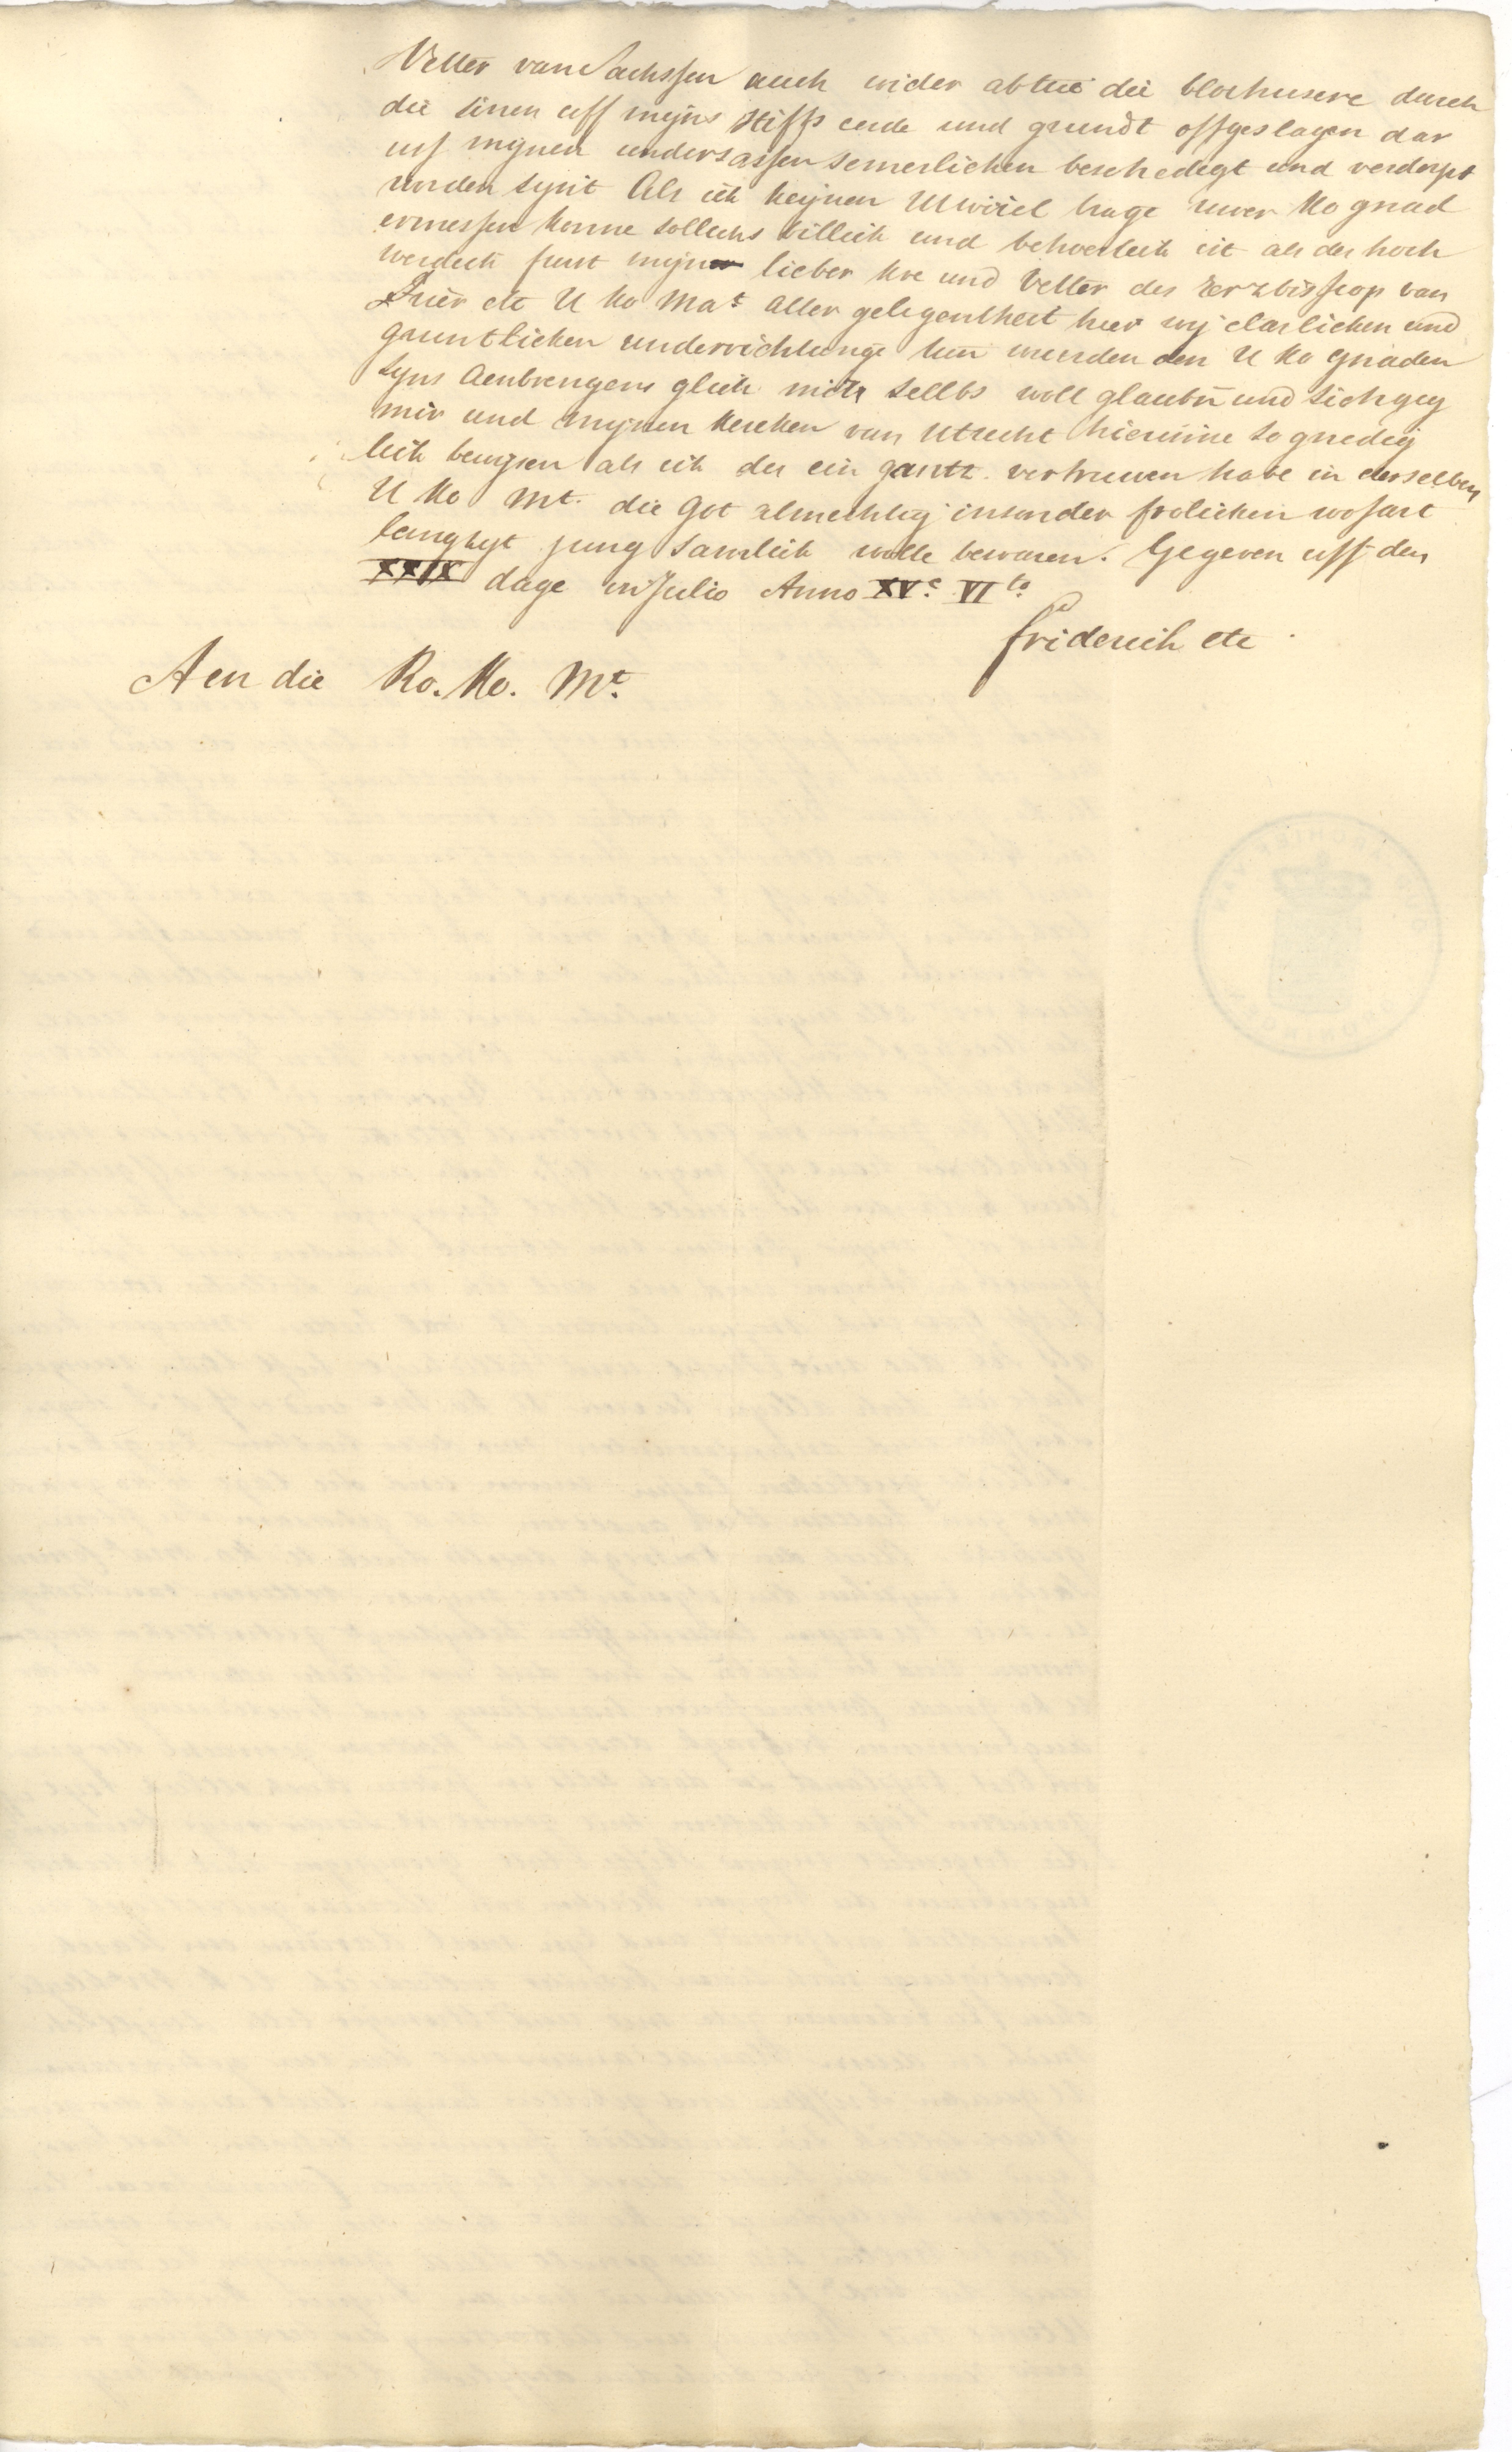 Vetter van Sachssen auch wider abtue die blochusere durch
die sinen uff mijns stiffs erde und grundt offgeslagen dar
uss mijnen undersassen semerlichen beschedigt und verderpt
worden synt Als ich keijnen uwivel trage uwer Ko gnad
ermessen konne sollichs billich und behoerlich ist als der hoch
werdich furst mijn lieber hre und Vetter der Ertzbisscop van
Trier etc U Ko Mat aller gelegentheit heer wij clarlichen und
gruntlichen underrichtunge tun wurden den U Ko gnaden
syns Aenbrengens glich mich sellbs woll glaubn und sich geg
mir und mijnen kercken van Utrecht hierinne so gnedig
lich bewijsen als ich des ein gantz vertruwen habe in derselben
U Ko Mt. die Got almechtig insonder frolichen wofart
langhyt jung samlich wolle bewaren. Gegeven uff den
XXIX dage in Julio Anno XVc VIto.
friderich etc
Aen die Ro. Ko. Mt.